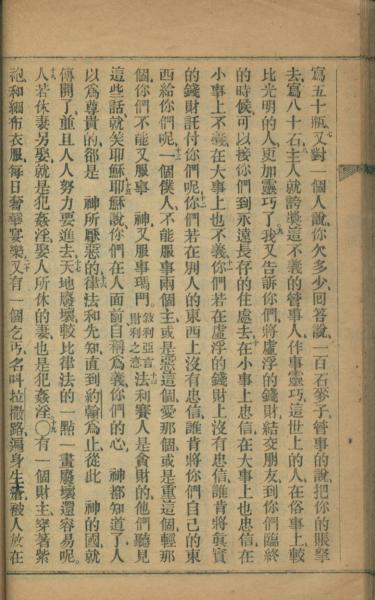 寫五十瓶又對一個人說你欠多少回答說一百石麥子管事的說把你的賬拏
去寫八十石主人就誇獎這不義的管事人作事靈巧這世上的人在俗事上較
比光明的人更加靈巧了我又告訴你們將虛浮的錢財結交朋友到你們臨終
的時候可以接你們到永遠長存的住處去在小事上忠信在大事上也忠信在
小事上不義在大事上也不義你們若在虛浮的錢財上沒有忠信誰肯將眞實
的錢財託付你們呢你們若在別人的東西上沒有忠信誰肯將你們自己的東
西給你們呢一個僕人不能服事兩個主或是惡這個愛那個或是重這個輕那
個你們不能又服事 神又服事瑪門敘利亞言財利之意法利賽人是貪財的他們聽見
這些話就笑耶穌耶穌說你們在人面前自稱爲義你們的心 神都知道了人
以爲尊貴的都是 神所厭惡的律法和先知直到約翰爲止從此 神的國就
傳開了並且人人努力要進去天地廢壞較比律法的一點一畫廢壞還容易呢
人若休妻另娶就是犯姦淫娶人所休的妻也是犯姦淫〇有一個財主穿著紫
袍和細布衣服每日奢華宴樂又有一個乞丐名叫拉撒路渾身生瘡被人放在